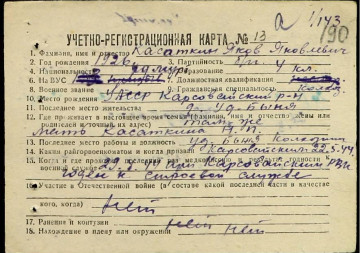 а 1/143
190
УЧЕТНО-РЕГИСТРАЦИОННАЯ КАРТА № 13
1. Фамилия, имя и отчество Касаткин Яков Яковлевич
2. Год рождения 1926 3. Партийность б/п
4. Национальность удмурт Образование 4 кл.
6. № ВУС 7. Должностная квалификация
8. Военное звание
10. Место рождения УАССР Карсовайский р-н
11. Последнее место жительства д. Уд. Быня
12. Где проживает в настоящее время семья (фамилия, имя и отчество жены или
родителей и точный их адрес) Там же
мать Касаткина
13. Последнее место работы и должность Уд. Быня Колхозник
14. Каким райвоенкоматом и когда призван Карсовайским 22.5.44
15. Когда и где проходил последний раз медкомиссию и результат годности к
военной службе Карсовайским РВК
годен к строевой службе
16. Участие в Отечественной войне (в составе какой последней части и качестве
кого, когда) Нет
17. Ранения и контузии Нет
18. Нахождение в плену или окружении Нет